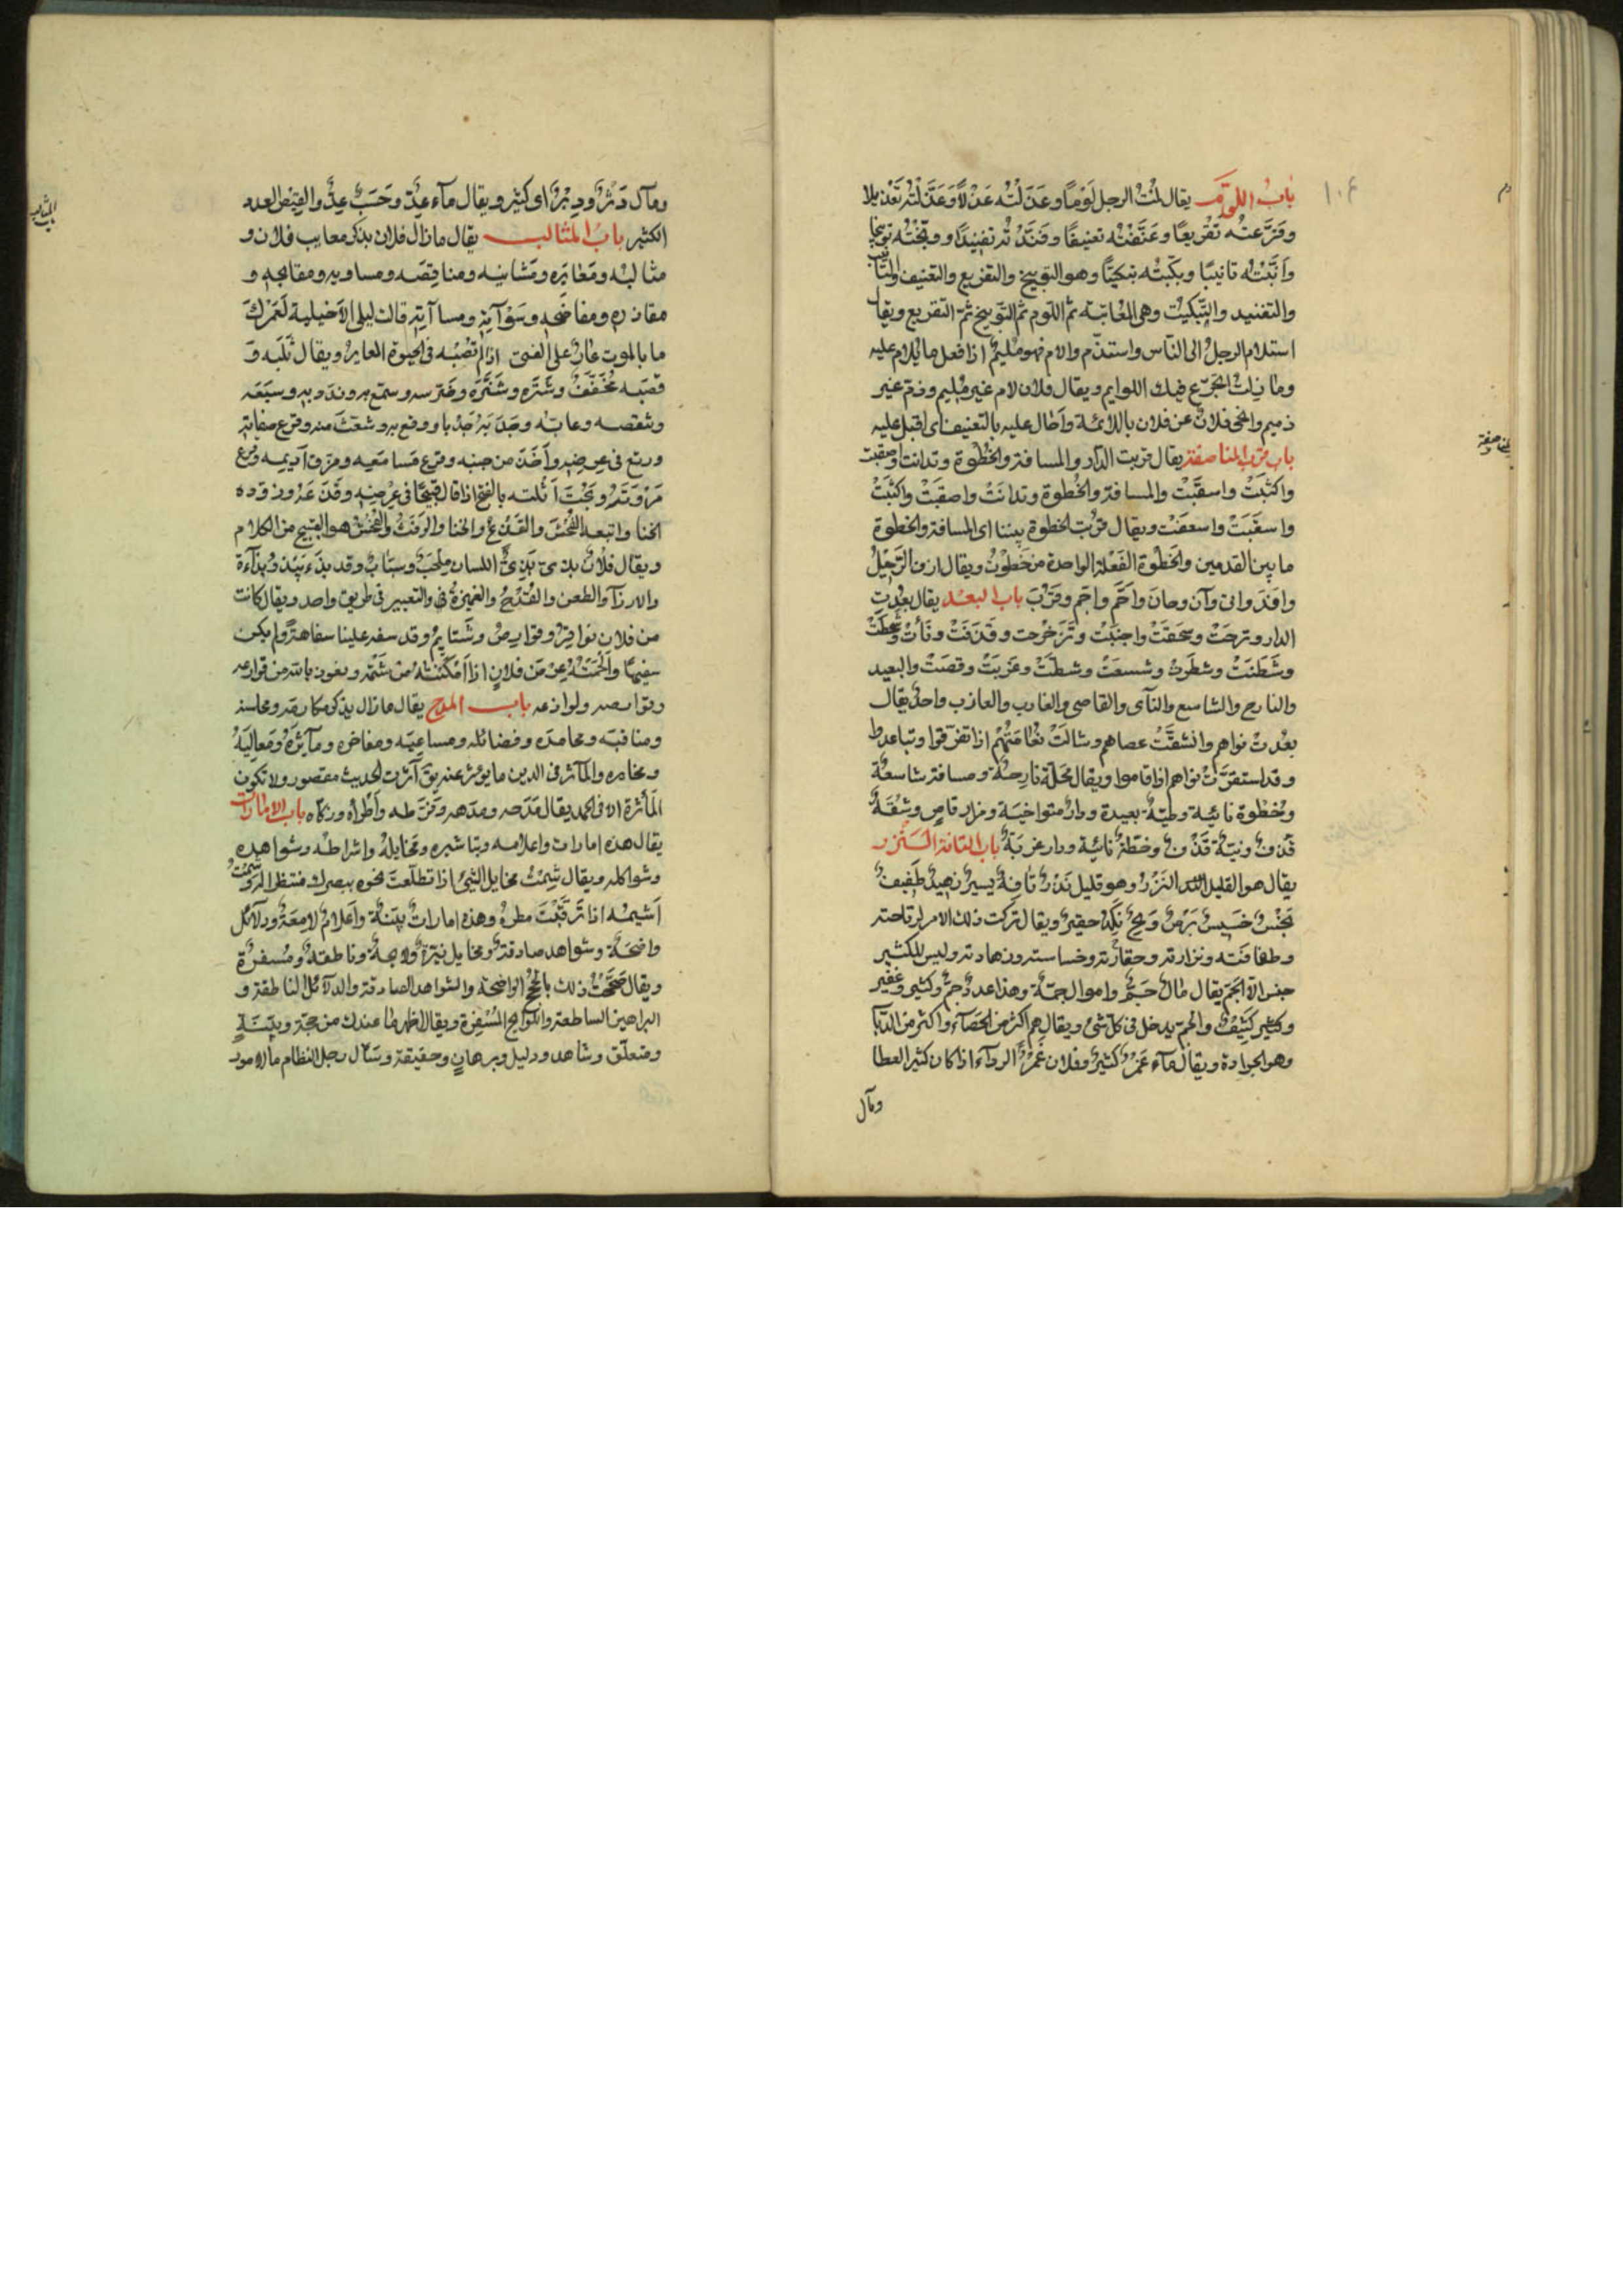 باب اللوم يقال لمت الرجل لوما وعذلته عذلا وعذلته تعذيلا
وقرعته تقريعا وعنفته تعنيفا وفندته تفنيدا ووبخته توبيخا
وانبته تانيبا وبكته تبكيتا وهو التوبيخ والتقريع والتعنيف والتانيب
والتفنيد والتبكيت وهى المعاتبة ثم اللوم ثم التوبيخ ثم التقريع ويقال
استلام الرجل الى الناس واستذم والام فهو مليم اذا فعل ما يلام عليه
وما زلت اتجرع فيك اللوايم ويقال فلان لام غير مليم وذم غير
ذميم وانحى فلان عن فلان باللائمة واحال عليه بالتعنيف اى اقبل عليه
باب قرب المناصفة يقال قربت الدار والمسافة والخطوة وتدانت وصقبت
واكثبت واسقبت والمسافة والخطوة وتدانت واصقبت واكثبت
واسقبت واسعفت ويقال قربت الخطوة بيننا اى المسافة والخطوة
ما بين القدمين والخطوة الفعلة الواحدة من خطوت ويقال ازف الرحيل
وافد وانى وآن وحان واحم واجم وقرب باب البعد يقال بعدت
الدار ونزحت وسحقت واجنبت وتزحزحت وقذفت ونأت وشحطت
وشطنت وشطرت وشسعت وشطت وعزبت وقصت والبعيد
والنازح والشاسع والنآى والقاصى والغارب والعازب واحد يقال
بعدت نواهم وانشقت عصاهم وشالت نعامتهم اذا تفرقوا وتباعدوا
وقد استقرت نواهم اذا قاموا ويقال محلة نازحة ومسافة شاسعة
وخطوة نائية وطية بعيدة ودار متواخية ومزار قاص وشقة
قذف ونية قذف وخطة نائية ودار غربة باب التافه النزر
يقال هو القليل النزر وهو قليل نزر تافه يسير زهيد طفيف
بخس خسيس برض وتح نكد حقير ويقال تركت ذلك الامر لوتاحته
وطفافته ونزارته وحقارته وخساسته وزهادته وليس للكثير
جنس الا الجم يقال مال جم واموال جمة وهذا عدد جم وكثير وغفير
وكثير كثيف والجم يدخل فى كل شئ ويقال هم اكثر من الحصآء واكثر من الدبا
وهو الجرادة ويقال مآء غمر كثير وفلان غمر الردآء اذا كان كثير العطا
ومآل
ومآل دثر ودبر اى كثير ويقال مآء عد وحسب عد والقبص العدد
الكثير باب المثالب يقال ما زال فلان يذكر معايب فلان و
مثالبه ومعايره ومشاينه ومناقصه ومساويه ومقابحه و
مقاذره ومفاضحه وسوآته ومساآته قالت ليلى الاخيلية لعمرك
ما بالموت عار على الفتى اذا لم تصبه فى الحيوة المعاير ويقال ثلبه و
قصبه وشتره وشنره وسمع به وندد به وسبعه
وتنقصه وعابه وجدبه جدبا ووقع به وشعث منه وقرع صفاته
ورتع فى عرضه واخذ من جنبه وقرع مسامعه ومزق اديمه وقرع
مروته ونحت اثلته اذا قال قبيحا فى عرضه
الخنا واتبعه الفحش والقذع والخنا والرفث والفحش هو القبيح من الكلام
ويقال فلان بذى اللسان وسباب وقد بذء يبذء بذآءة
والطعن والقدح والغميزة والتعيير فى طريق واحد ويقال كانت
من فلان نواقر وقوارص وشتايم وقد سفه علينا سفاهة ولم يكن
سفيها والحمته عرض فلان اذا امكنته من شتمه ونعوذ بالله من قوارعه
وقوارصه ولواذعه باب المدح يقال ما زال يذكر مكارمه ومحاسنه
ومناقبه ومحامده وفضائله ومساعيه ومفاخره ومآثره ومعاليه
والمآثر فى الدين ما يوثر عنه من آثرت الحديث مقصور ولا تكون
المأثرة الا فى الحمد يقال مدحه ومدهه وقرظه واطراه وزكاه باب الامارات
يقال هذه امارات واعلامه وتباشيره ومخايله واشراطه وشواهده
وشواكله ويقال شمت مخايل الشئ اذا تطلعت نحوه ببصرك منتظرا له وشمت
اشيمه اذا ترقبت مطره وهذه امارات بينة واعلام لامعة ودلآئل
واضحة وشواهد صادقة ومخايل نيرة وناطقة ومسفرة
ويقال صححت ذلك بالحجج الواضحة والشواهد الصادقة والدلآئل الناطقة و
البراهين الساطعة واللوآيح المسفرة ويقال اظهر ما عندك من حجة وبينة
ومتعلق وشاهد ودليل وبرهان وحقيقة رجل النظام ما الامور